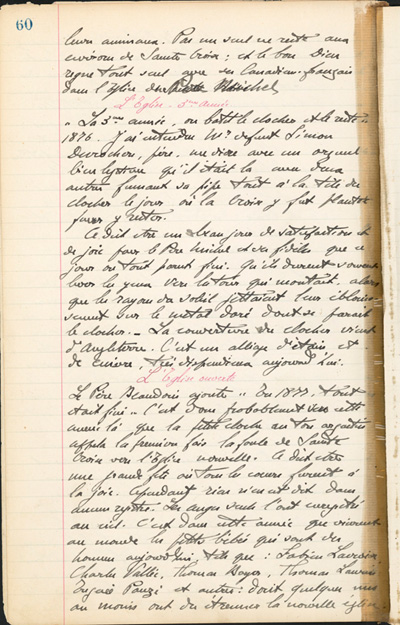 60
leurs animaux. Pas un seul ne reste aux
environs de Sainte Croix ; et le bon Dieu
règne tout seul avec ses Canadiens-français
dans l'Eglise du Père Michel
L'Eglise. 3me année.
" La 3me année, on bâtit le clocher et le reste "
1876. J'ai entendu Mr. defunt Simon
Durocher, père, me dire avec un orgueil
bien légitime qu'il était là avec deux
autres fumant sa pipe tout à la tête du
clocher le jour où la Croix y fut plantée
pour y rester.
Ce dût être un beau jour de satisfaction et
de joie pour le Père Michel et ses fidèles que ce
jour où tout parut fini. Qu'ils durent souvent
lever les yeux vers la tour qui montait, alors
que les rayons du soleil jettaient leur éblouis-
sement sur le métal doré dont se parait
le clocher. – La couverture du clocher vient
d'Angleterre. C'est un alliage d'étain et
de cuivre, très dispendieux aujourd'hui.
L'Eglise ouverte
Le Père Beaudoin ajoute " En 1877, tout
était fini ". C'est donc probablement vers cette
année là que la petite cloche au ton argentin
appela la première fois la foule de Sainte
Croix vers l'Eglise nouvelle. Ce dût être
une grande fête où tous les coeurs furent à
la joie. Cependant rien n'en est dit dans
aucun registre. Les anges seuls l'ont enregistré
au ciel. C'est dans cette année que vinrent
au monde les petits bébés qui sont des
hommes aujourd'hui, tels que :
Charles Vallée, Thomas Boyer, Thomas
et autres : dont quelques uns
au moins ont dû étrenner la nouvelle église.